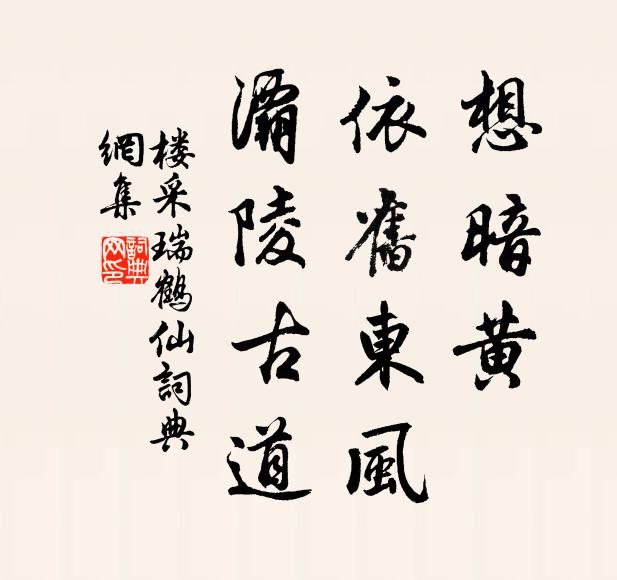 想暗黄
依舊東風
灞陵古道
楼采瑞鶴仙詞典
網集
詞典
网印